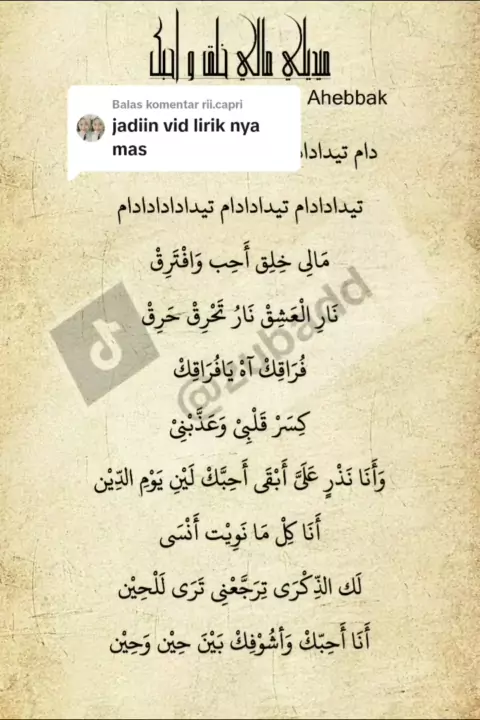 ميديلي مالي خلق و احبك
Ahebbak
Balas komentar rii.capri
jadiin vid lirik nya
mas
دام تيدادا
تيدادادام تيدادادام تيدادادادادام
مَالِى خِلِق أَحِب وَافْتَرِقْ
نَارِ الْعَشِقْ نَارُ تَحْرِقْ حَرِقْ
@zubadd
فُرَاقِكْ آهْ يَافُرَاقِكْ
كِسَرْ قَلْبِىْ وَعَذَّبْنِىْ
وَأَنَا نَذْرٍ عَلَىَّ أَبْقَى أَحِبَّكْ لَيْنِ يَوْمِ الدِّيْن
أَنَا كِلْ مَا نَوِيْت أَنْسَى
لَك الذِّكْرَى تِرَجَّعْنِى تَرَى لَلْحِيْن
أَنَا أَحِبّكْ وَأشُوْفِكْ بَيْنَ حِيْن وَحِيْن